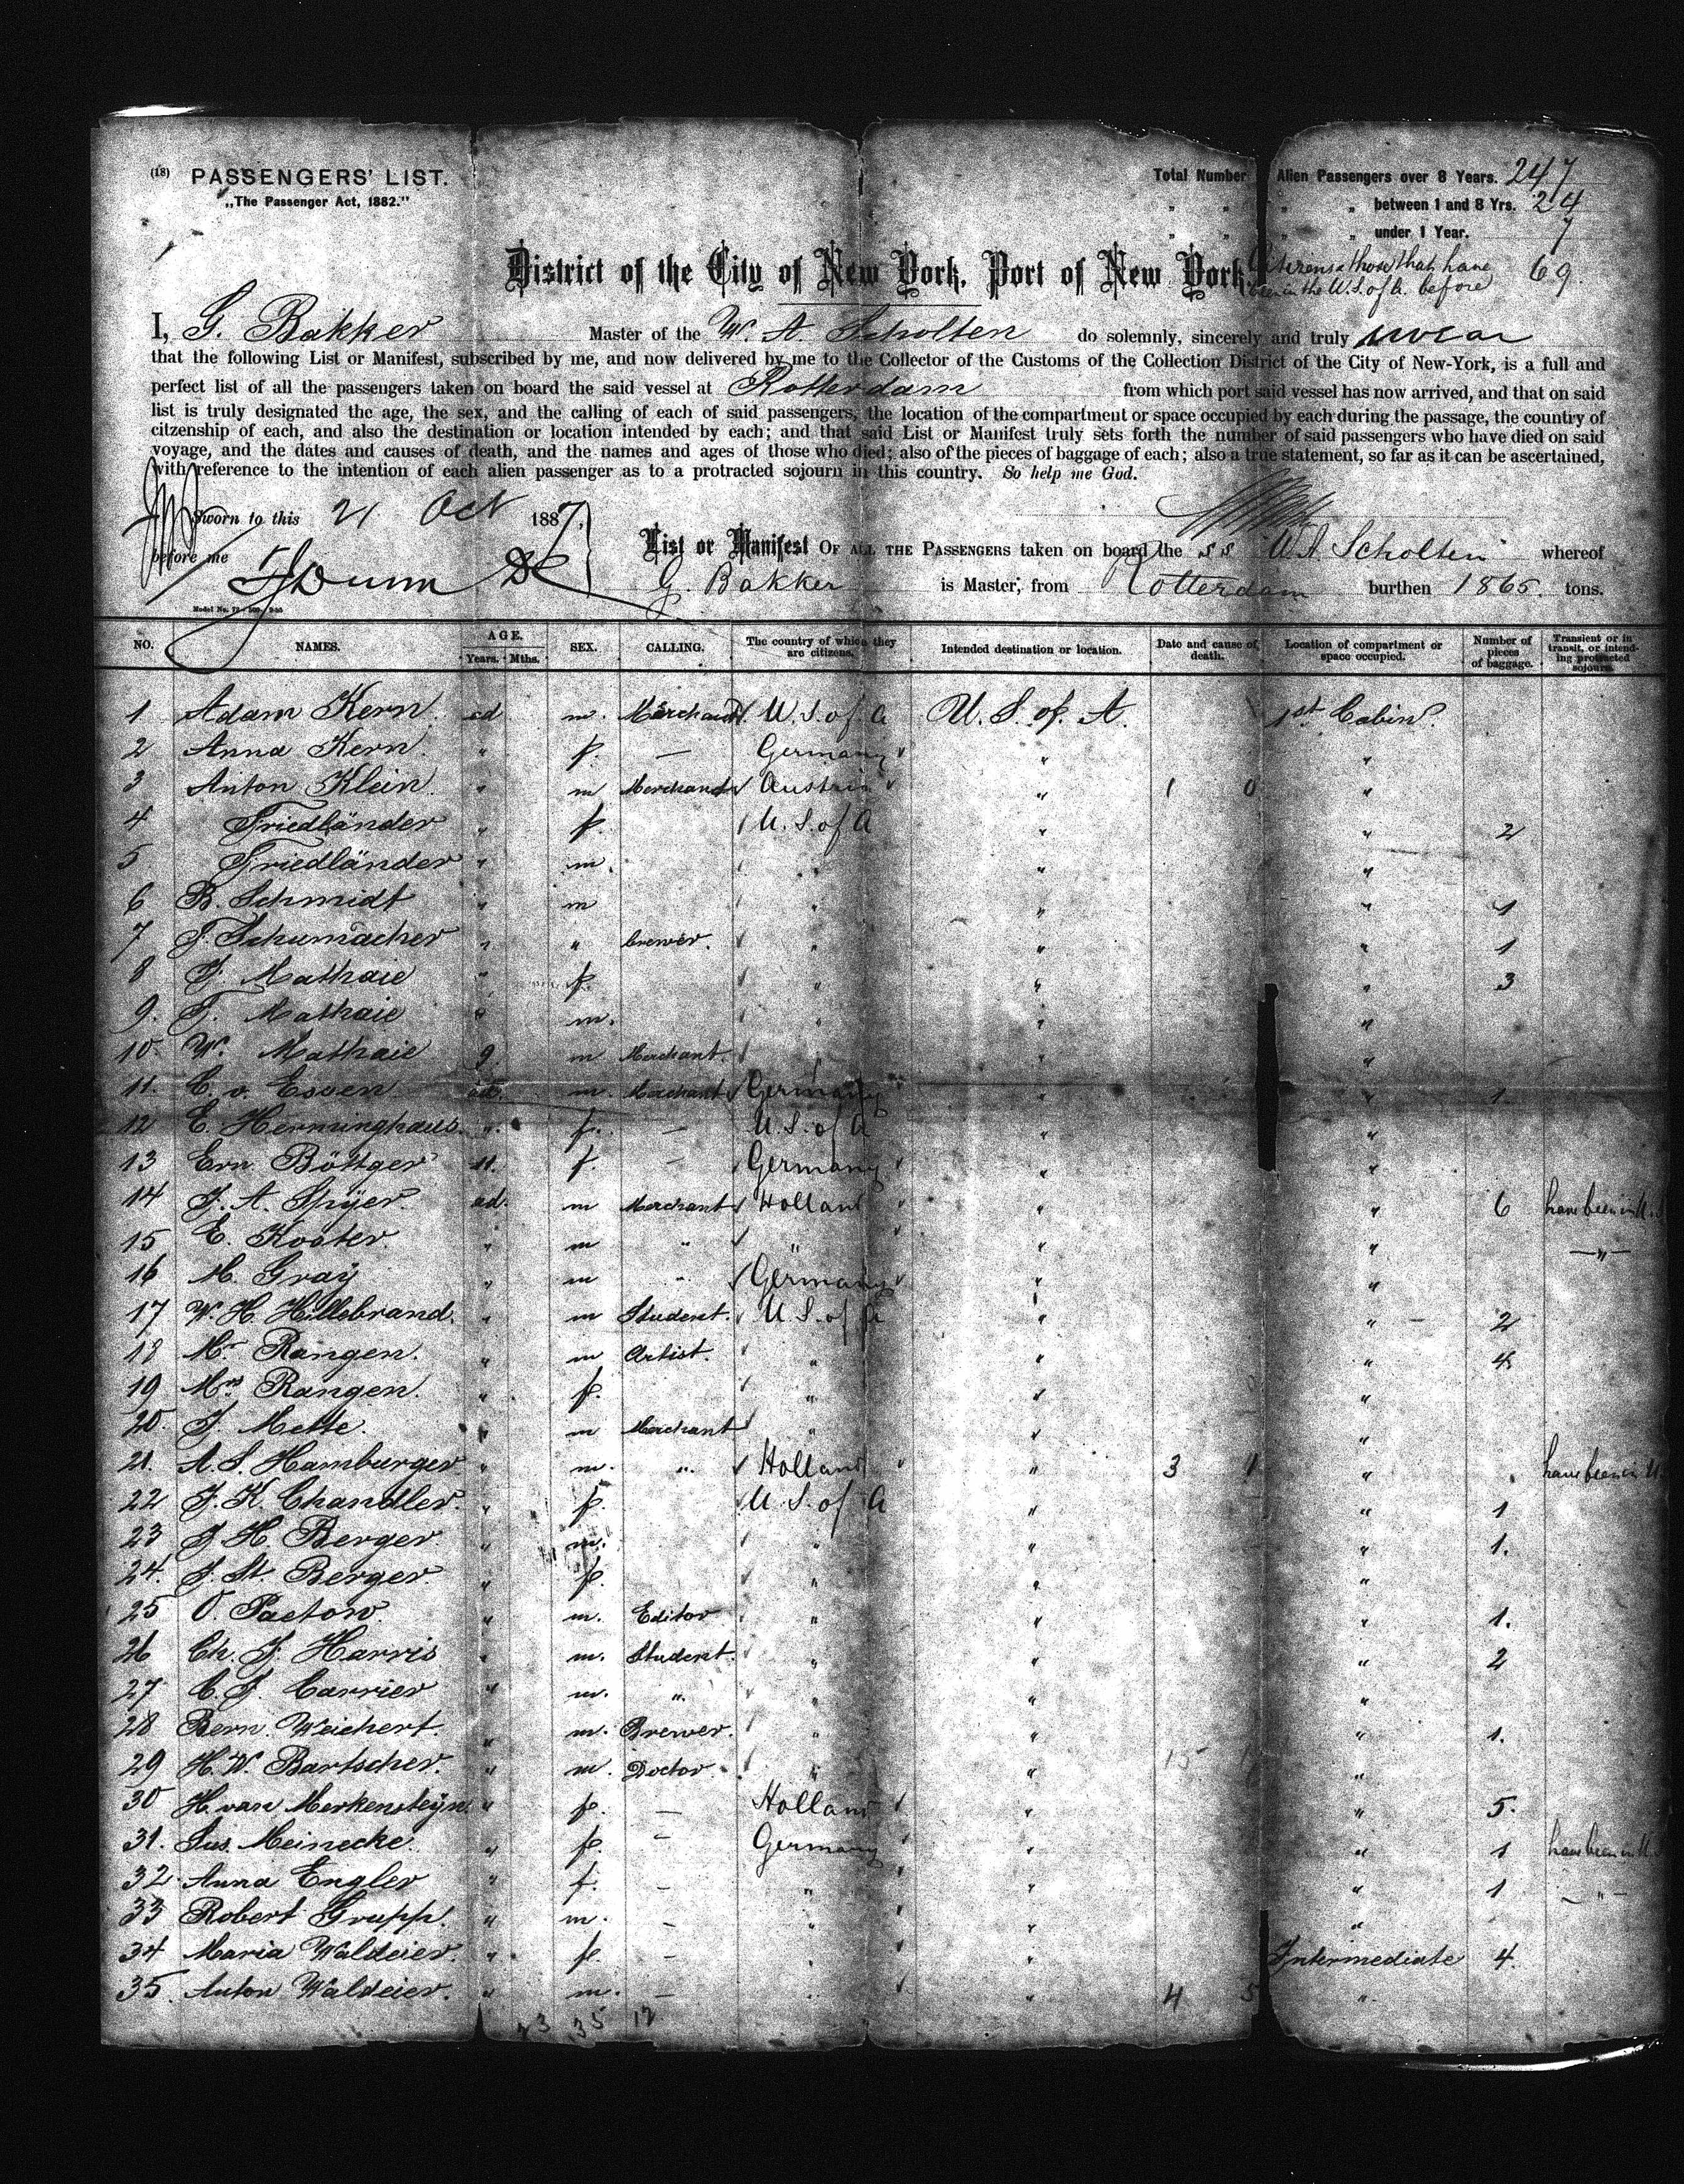 (18) PASSENGERS' LIST.
„The Passenger Act, 1882."
Total Number Alien Passengers over 8 Years. 247
„ „ „ „ between 1 and 8 Yrs. 24
„ „ „ „ under 1 Year. 7
Citizens & those that have been in the U.S. of A. before 69.
District of the City of New York, Port of New York
I, G. Bakker Master of the W. A. Scholten do solemnly, sincerely and truly swear
that the following List or Manifest, subscribed by me, and now delivered by me to the Collector of the Customs of the Collection District of the City of New-York, is a full and
perfect list of all the passengers taken on board the said vessel at Rotterdam from which port said vessel has now arrived, and that on said
list is truly designated the age, the sex, and the calling of each of said passengers, the location of the compartment or space occupied by each during the passage, the country of
citzenship of each, and also the destination or location intended by each; and that said List or Manifest truly sets forth the number of said passengers who have died on said
voyage, and the dates and causes of death, and the names and ages of those who died; also of the pieces of baggage of each; also a true statement, so far as it can be ascertained,
with reference to the intention of each alien passenger as to a protracted sojourn in this country. So help me God.
Sworn to this 21 Oct 1887,
before me Dunn
List or Manifest OF ALL THE PASSENGERS taken on board the SS W A Scholten whereof
G. Bakker is Master, from Rotterdam burthen 1865. tons.
NO. NAMES. AGE. Years. Mths. SEX. CALLING. The country of which they are citizens. Intended destination or location. Date and cause of death. Location of compartment or space occupied. Number of pieces of baggage. Transient or in transit, or intending protracted sojourn.
1 Adam Kern. ad m. Merchant U. S. of A U. S. of A. 1st Cabin.
2 Anna Kern. " f. — Germany " "
3 Anton Klein. " m Merchant Austria " 1 0 "
4 Friedländer " f. U. S. of A " " 2
5 Friedländer " m. " " "
6 B. Schmidt " m " " " 1
7 J. Schumacher " " brewer. " " " 1
8 J. Mathaie " f. " " " 3
9. F. Mathaie " m. " " "
10. W. Mathaie 9. m Merchant. " " "
11. C. v. Essen ad. m. Merchant Germany " " 1.
12 E. Herminghaus. " f. — U. S. of A " "
13 Ern. Böttger 11. f. — Germany " "
14 J. A. Spijer. ad. m Merchant Holland " " 6 have been in U.S.
15 E. Koster. " m " " " " —"—
16 M. Gray " m " Germany " "
17 W. H. Hillebrand. " m Student. U. S. of A " " 2
18 Mr Rangen. " m Artist. " " " 4.
19 Mrs Rangen. " f. " " "
20. J. Mette. " m Merchant " " "
21. A. S. Hamburger " m. " Holland " 3 1 " have been in U.
22 J. K. Chandler. " f. U. S. of A " " 1
23 J. H. Berger. " m. " " " 1.
24. J. St. Berger. " f. " " "
25 O. Paetow. " m. Editor " " " 1.
26 Ch. J. Harris " m. Student. " " " 2
27 C. J. Carrier " m. " " " "
28 Bern. Weichert. " m. Brewer. " " " 1.
29 H. W. Bartscher. " m. Doctor. " " 15 "
30 H. van Merkensteyn. " f. — Holland " " 5.
31. Sus. Meinecke. " f. — Germany " " 1 have been in U.
32 Anna Engler " f. — " " " 1 —"—
33 Robert Grupp. " m. — " " "
34 Maria Waldeier. " f. — " " Intermediate 4.
35. Anton Waldeier. " m. — " " 4 5 "
23 35 12